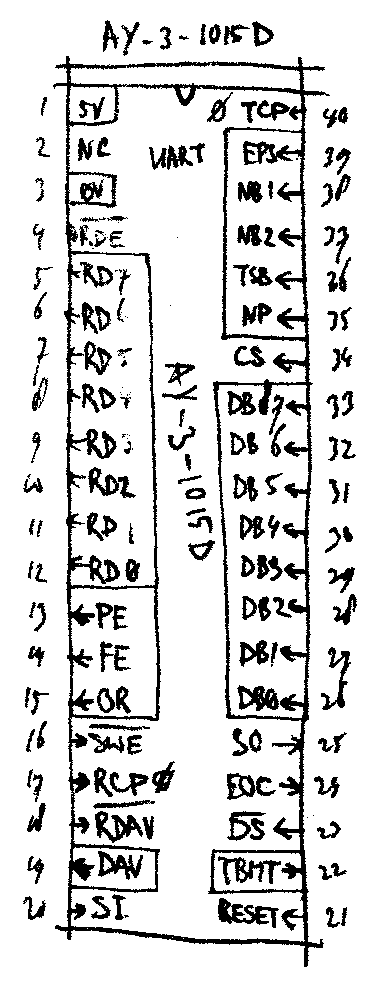 AY-3-1015D
1 5V Ø TCP 40
2 NC UART EPS 39
3 0V NB1 38
4 RDE NB2 37
5 RD7 TSB 36
6 RD6 NP 35
7 RD5 CS 34
8 RD4 DB7 33
9 RD3 DB6 32
10 RD2 DB5 31
11 RD1 DB4 30
12 RD0 DB3 29
13 PE DB2 28
14 FE DB1 27
15 OR DB0 26
16 SWE SO 25
17 RCP Ø EOC 24
18 RDAV DS 23
19 DAV TBMT 22
20 SI RESET 21
AY-3-1015D